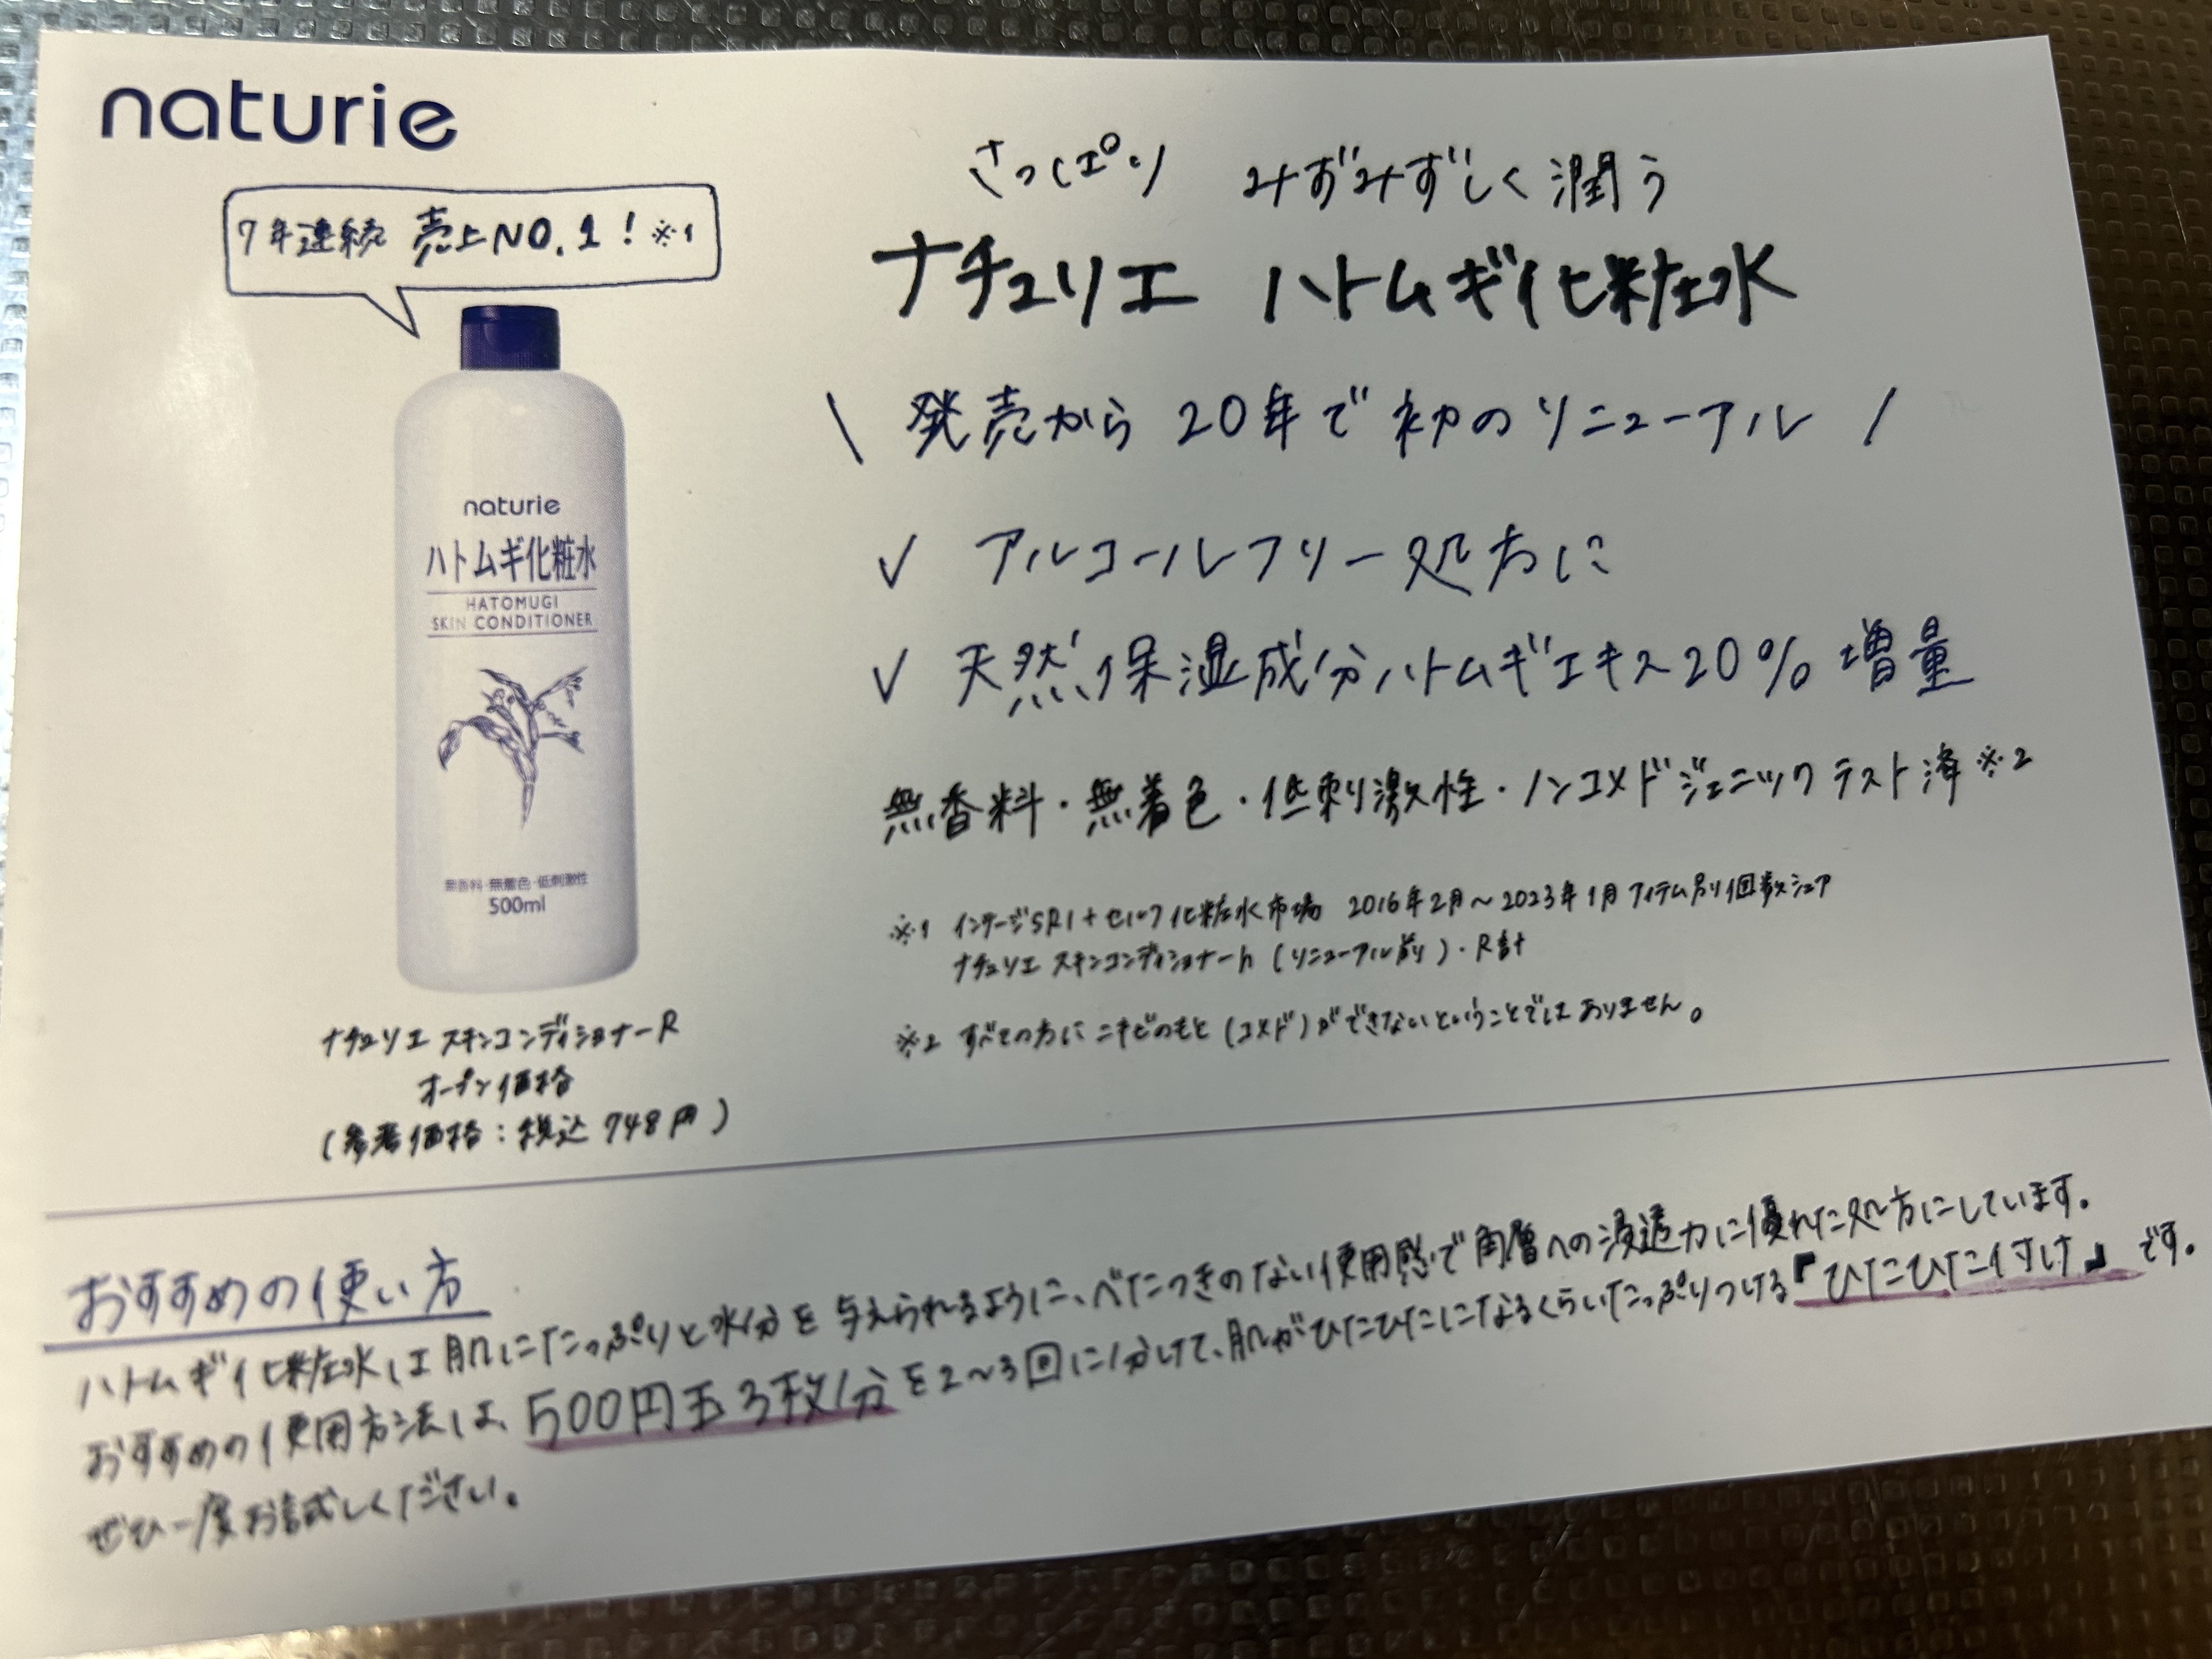 naturie
7年連続 売上NO.1!※1
naturie
ハトムギ化粧水
HATOMUGI
SKIN CONDITIONER
無香料・無着色・低刺激性
500ml
ナチュリエ スキンコンディショナーR
オープン価格
(参考価格：税込 748円)
さっぱり みずみずしく潤う
ナチュリエ ハトムギ化粧水
\ 発売から 20年で初のリニューアル /
✓ アルコールフリー処方に
✓ 天然保湿成分ハトムギエキス20%増量
無香料・無着色・低刺激性・ノンコメドジェニックテスト済※2
※1 インテージSRI+セルフ化粧水市場 2016年2月～2023年1月アイテム別個数シェア
ナチュリエ スキンコンディショナーh(リニューアル前)・R計
※2 すべての方にニキビのもと(コメド)ができないということではありません。
おすすめの使い方
ハトムギ化粧水は肌にたっぷりと水分を与えられるように、べたつきのない使用感で角層への浸透力に優れた処方にしています。
おすすめの使用方法は、500円玉3枚分を2～3回に分けて、肌がひたひたになるくらいたっぷりつける『ひたひた付け』です。
ぜひ一度お試しください。